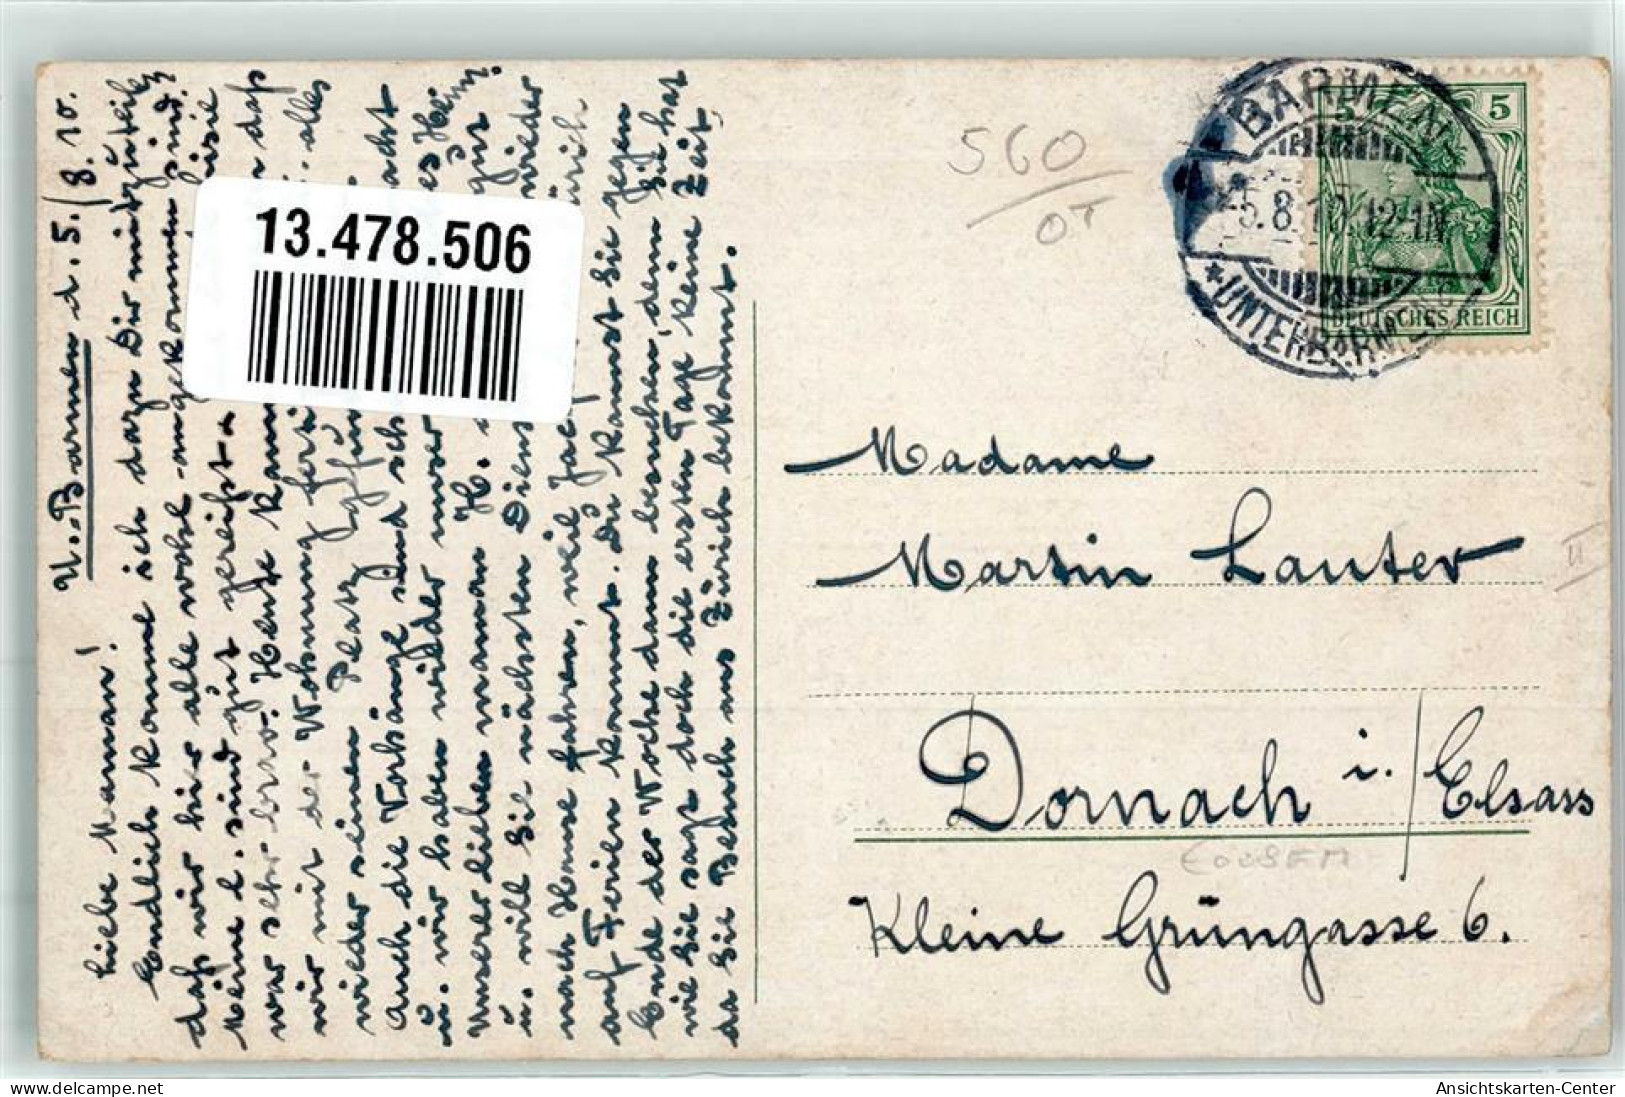 U.-Barmen d. 5./8.10.
Liebe Maman!
Endlich komme ich dazu Dir mitzuteilen
daß wir hier alle wohl angekommen sind.
Meine l. sind gut gereist.
war sehr brav. Heute kam daß
wir mit der Wohnung ferti alles
wieder seinen Platz
Auch die Vorhänge sind sch acht
u. wir haben wieder unser es Heim
Unserer lieben maman H. gut
u. will Sie nächsten Diens wieder
nach Hause fahren, weil Jac ürich
auf Ferien kommt. Du kannst Sie gegen
Ende der Woche dann besuchen, denn Sie hat
wie Sie sagt doch die ersten Tage keine Zeit
da Sie Besuch aus Zürich bekommt.
13.478.506
560
BARMEN
5.8.10.12-1N
*UNTERBARMEN
5
DEUTSCHES REICH
Madame
Martin Lauter
Dornach i./Elsass
Kleine Grüngasse 6.
II
www.oldthing.de
Ansichtskarten-Center